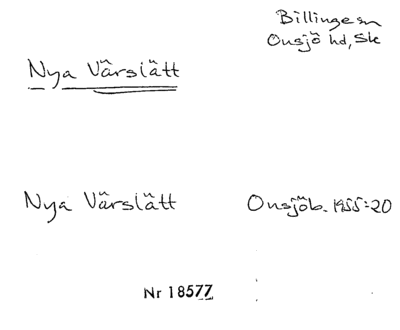 Billinge sn
Onsjö hd, Sk
Nya Värslätt
Nya Värslätt Onsjöb. 1955:20
Nr 18577